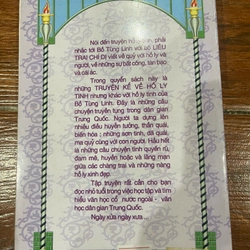 Nói đến truyện hồ ly tinh, phải
nhắc tới Bồ Tùng Linh với bộ LIÊU
TRAI CHÍ DỊ viết về quỷ với hồ ly và
người, về những sự bất công, tàn bạo
và cái ác.
Trong quyển sách này là
những TRUYỆN KỂ VỀ HỒ LY
TINH nhưng khác với hồ ly tinh của
Bồ Tùng Linh. Đây là những câu
chuyện truyền tụng trong dân gian
Trung Quốc. Người ta dựng lên
nhiều điều huyền tưởng, thần quái,
biến hóa : những sơn tinh, dã quái,
ma quỷ cùng với con người. Hầu hết
là những câu chuyện tình quyến rũ,
đam mê, huyền hoặc và lãng mạn
giữa các chàng trai và những nàng
hồ ly xinh đẹp.
Tập truyện rất cần cho bạn
đọc nhỏ tuổi trong việc học tập và tìm
hiểu văn học cổ nước ngoài - văn
học dân gian Trung Quốc.
Ngày xửa ngày xưa ...